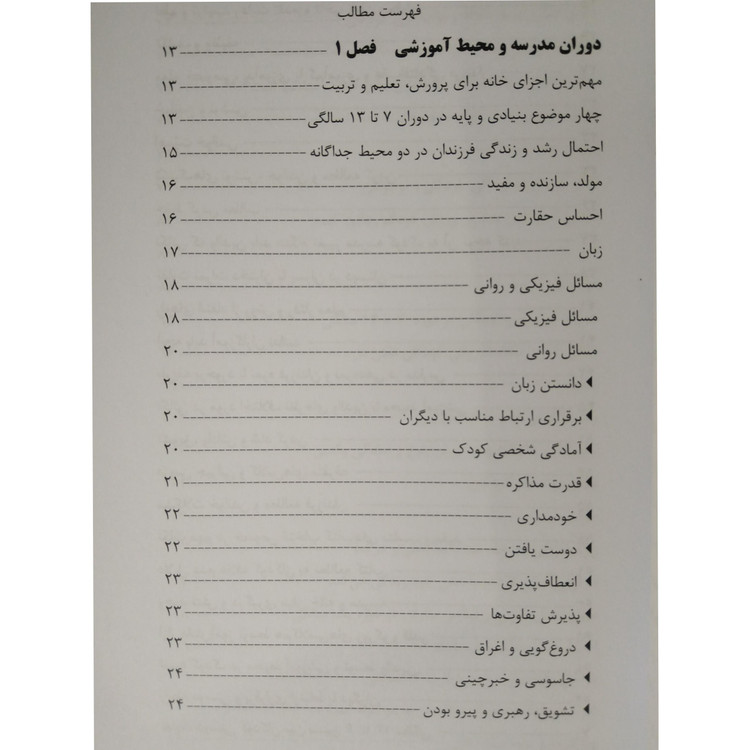 فهرست مطالب
دوران مدرسه و محیط آموزشی فصل ۱ ۱۳
مهم‌ترین اجزای خانه برای پرورش، تعلیم و تربیت ۱۳
چهار موضوع بنیادی و پایه در دوران ۷ تا ۱۳ سالگی ۱۳
احتمال رشد و زندگی فرزندان در دو محیط جداگانه ۱۵
مولد، سازنده و مفید ۱۶
احساس حقارت ۱۶
زبان ۱۷
مسائل فیزیکی و روانی ۱۸
مسائل فیزیکی ۱۸
مسائل روانی ۲۰
دانستن زبان ۲۰
برقراری ارتباط مناسب با دیگران ۲۰
آمادگی شخصی کودک ۲۰
قدرت مذاکره ۲۱
خودمداری ۲۲
دوست یافتن ۲۲
انعطاف‌پذیری ۲۳
پذیرش تفاوت‌ها ۲۳
دروغ‌گویی و اغراق ۲۳
جاسوسی و خبرچینی ۲۴
تشویق، رهبری و پیرو بودن ۲۴